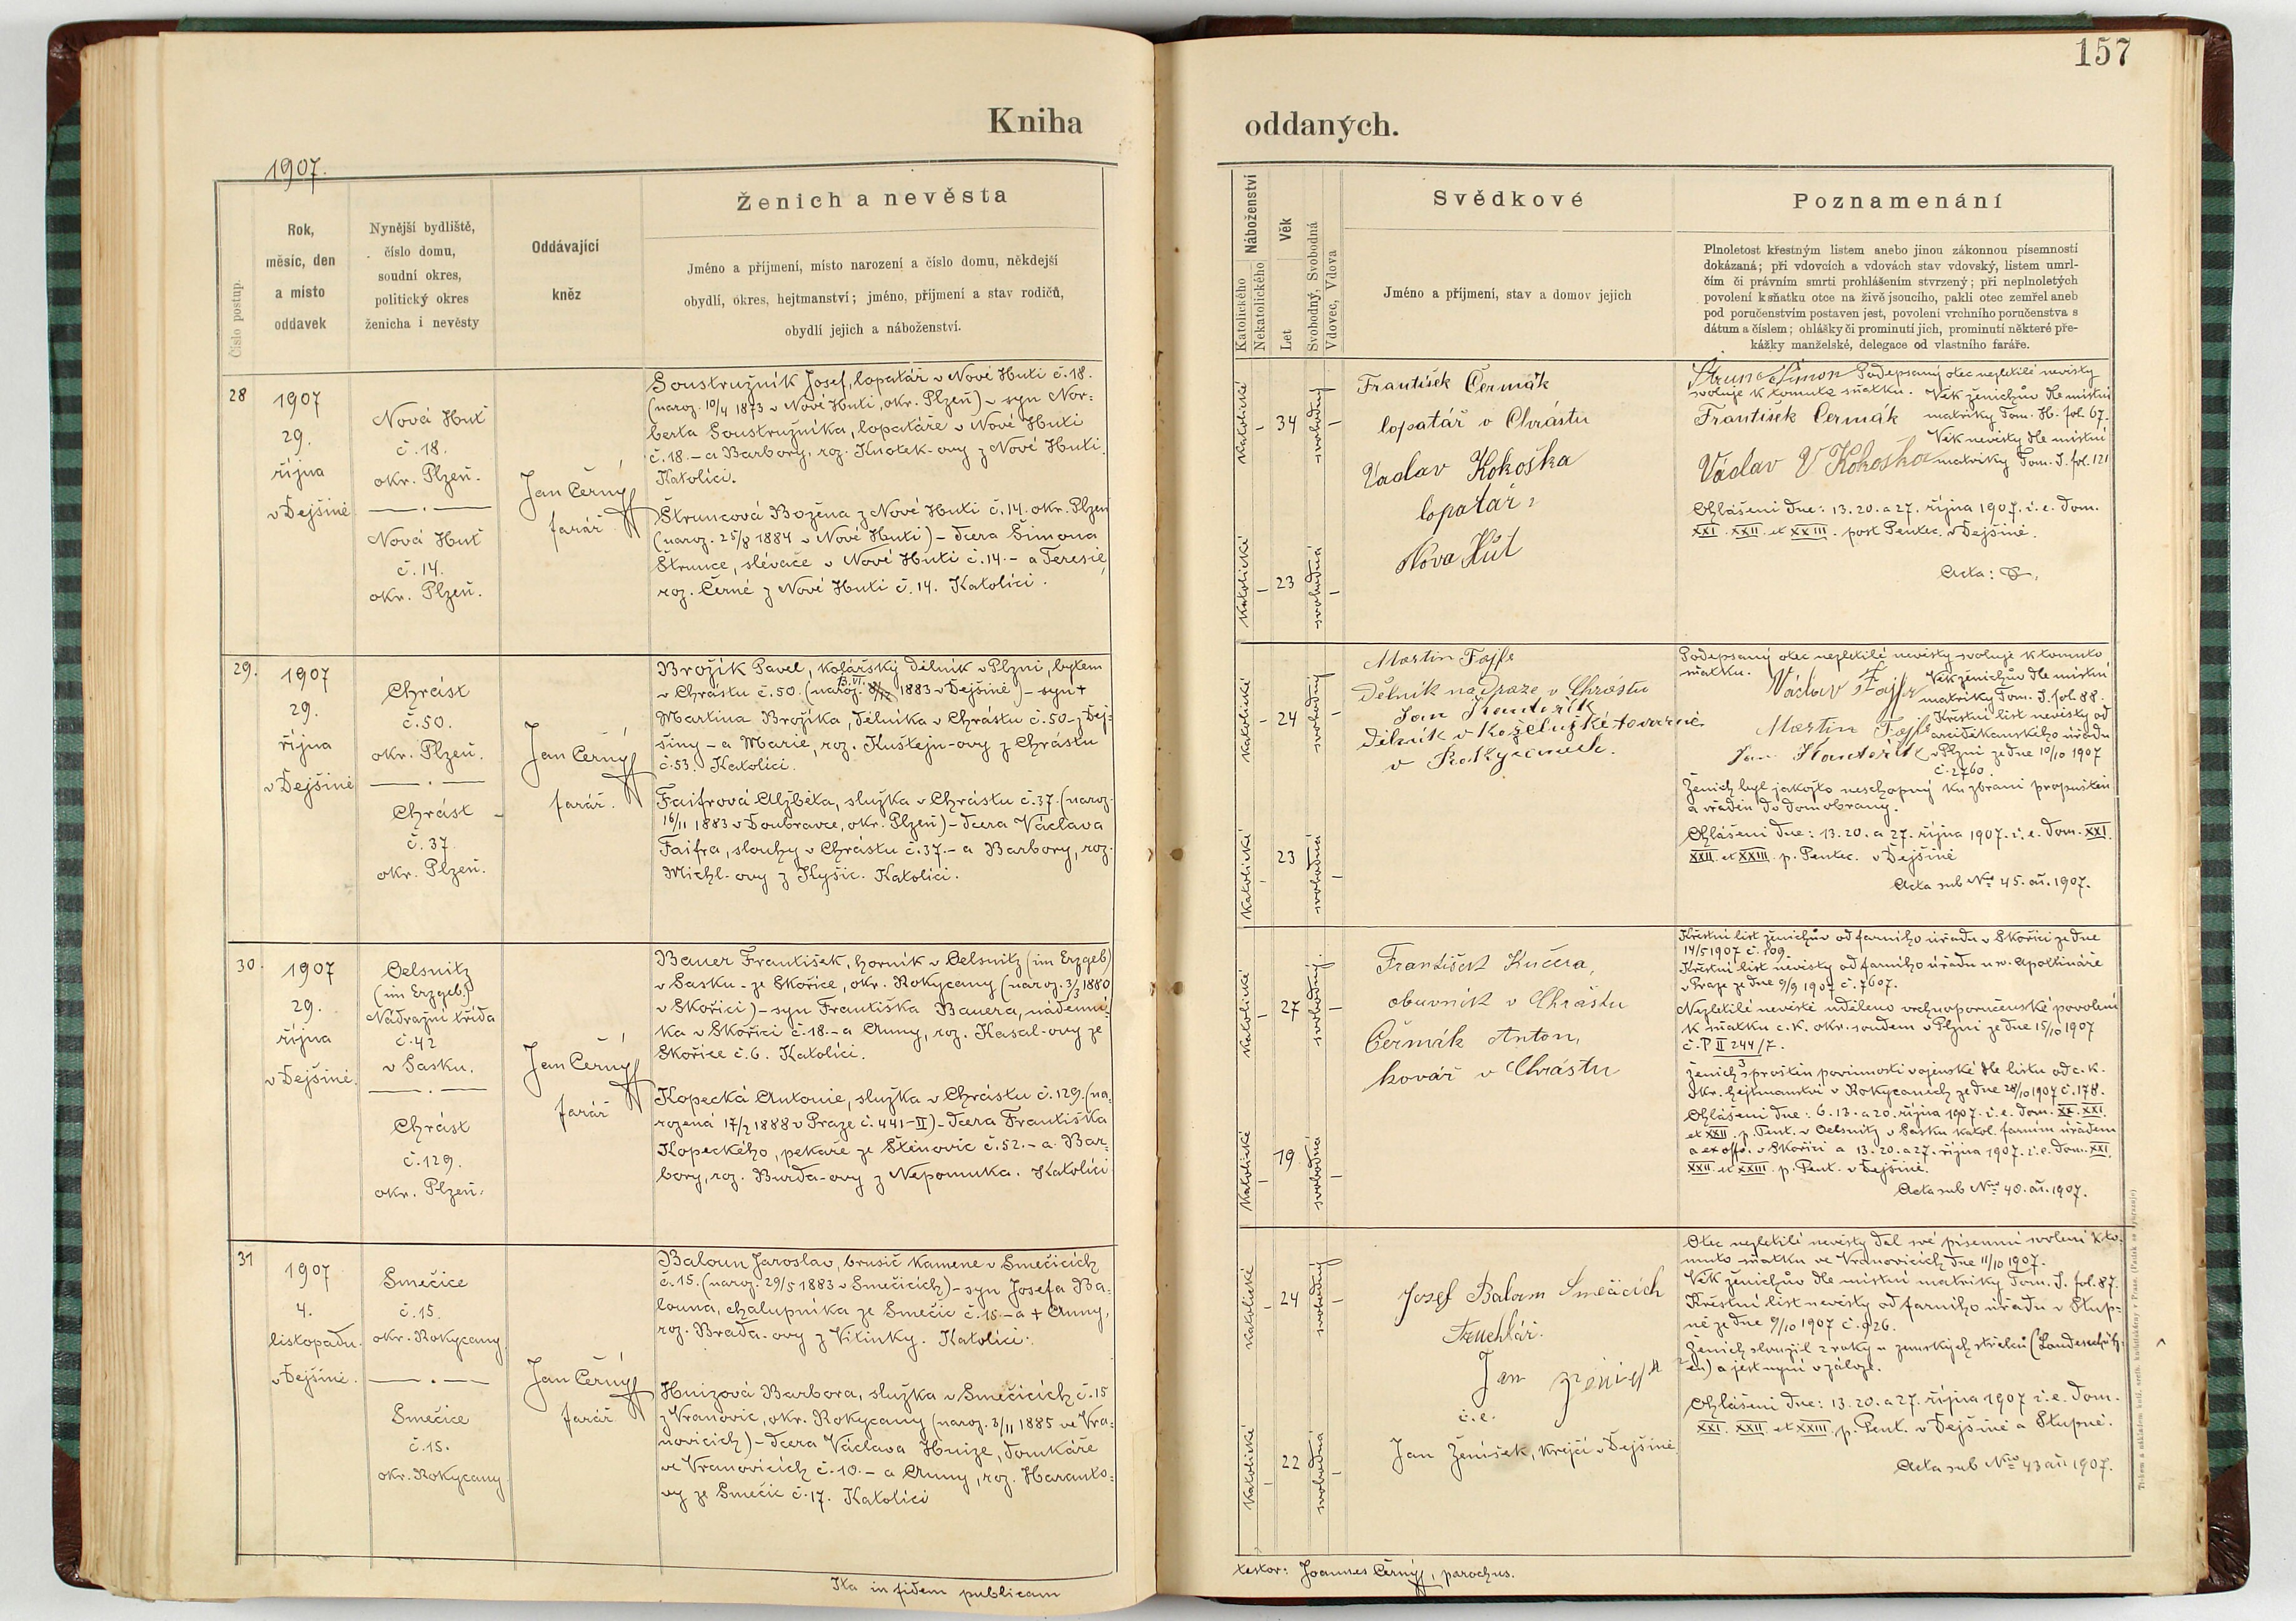 157
Kniha oddaných.
1907.
Číslo postup.
Rok,
měsíc, den
a místo
oddavek
Nynější bydliště,
číslo domu,
soudní okres,
politický okres
ženicha i nevěsty
Oddávající
kněz
Ženich a nevěsta
Jméno a příjmení, místo narození a číslo domu, někdejší
obydlí, okres, hejtmanství; jméno, příjmení a stav rodičů,
obydlí jejich a náboženství.
Náboženství
Katolického
Nekatolického
Věk
Let
Svobodný, Svobodná
Vdovec, Vdova
Svědkové
Jméno a příjmení, stav a domov jejich
Poznamenání
Plnoletost křestným listem anebo jinou zákonnou písemností
dokázaná; při vdovcích a vdovách stav vdovský, listem umrl-
čím či právním smrti prohlášením stvrzený; při neplnoletých
povolení k sňatku otce na živě jsoucího, pakli otec zemřel aneb
pod poručenstvím postaven jest, povolení vrchního poručenstva s
dátum a číslem; ohlášky či prominutí jich, prominutí některé pře-
kážky manželské, delegace od vlastního faráře.
28
1907
29.
října
v Dejšině
Nová Huť
č. 18.
okr. Plzeň.
Nová Huť
č. 14.
okr. Plzeň.
Jan Černý
farář
Soustružník Josef, lopatář v Nové Huti č. 18.
(naroz. 10/4 1873 v Nové Huti, okr. Plzeň) – syn Nor=
berta Soustružníka, lopatáře v Nové Huti
č. 18. – a Barbory, roz. Knotek-ovy z Nové Huti.
Katolíci.
Štruncová Božena z Nové Huti č. 14. okr. Plzeň
(naroz. 25/8 1884 v Nové Huti) – dcera Šimona
Štrunce, slévače v Nové Huti č. 14. – a Teresie,
roz. Černé z Nové Huti č. 14. Katolíci.
katolické
34
svobodný
katolické
23
svobodná
František Čermák
lopatář v Chrástu
Vaclav Kokoška
lopatař
Nova Huť
Štrunc Šimon Podepsaný otec nezletilé nevěsty
svoluje k tomuto sňatku. Věk ženichův dle místní
František Čermák matriky Tom. H. fol. 67.
Věk nevěsty dle místní
Václav V Kokoška matriky Tom. I. fol. 121
Ohlášeni dne: 13. 20. a 27. října 1907. i. e. Dom.
XXI. XXII et XXIII. post Pentec. v Dejšině.
Acta:
29.
1907
29.
října
v Dejšině
Chrást
č. 50.
okr. Plzeň.
Chrást
č. 37.
okr. Plzeň.
Jan Černý
farář.
Brožík Pavel, kolářský dělník v Plzni, bytem
v Chrástu č. 50. (naroz. 13. VI. 1883 v Dejšině) – syn +
Martina Brožíka, dělníka v Chrástu č. 50 – z Dej=
šiny – a Marie, roz. Kuštejn-ovy z Chrástu
č. 53. Katolíci.
Faifrová Alžběta, služka v Chrástu č. 37. (naroz.
16/11 1883 v Doubravce, okr. Plzeň) – dcera Václava
Faifra, slouhy v Chrástu č. 37. – a Barbory, roz.
Michl-ovy z Kyšic. Katolíci.
katolické
24
svobodný
katolické
23
svobodná
Martin Fajfr
Dělník na Draze v Chrástu
Jan
Dělník v Koželužké továrně
v Rokycanech.
Podepsaný otec nezletilé nevěsty svoluje k tomuto
sňatku. Věk ženichův dle místní
Václav Fajfr matriky Tom. I. fol. 88.
Křestní list nevěsty od
Martin Fajfr arciděkanského úřadu
Jan v Plzni ze dne 10/10 1907
č. 2760.
Ženich byl jakožto neschopný ku zbrani propuštěn
a vřaděn do domobrany.
Ohlášeni dne: 13. 20. a 27. října 1907. i. e. Dom. XXI.
XXII. et XXIII. p. Pentec. v Dejšině
Acta sub Nro 45. ai. 1907.
30.
1907
29.
října
v Dejšině.
Oelsnitz
(im Erzgeb.)
Nádražní třída
č. 42
v Sasku.
Chrást
č. 129.
okr. Plzeň.
Jan Černý
farář
Bauer František, horník v Oelsnitz (im Erzgeb)
v Sasku – ze Skořice, okr. Rokycany (naroz. 3/3 1880
v Skořici) – syn Františka Bauera, nádenní=
ka v Skořici č. 18. – a Anny, roz. Kasal-ovy ze
Skořice č. 6. Katolíci.
Kopecká Antonie, služka v Chrástu č. 129. (na=
rozená 17/2 1888 v Praze č. 441-II) – dcera Františka
Kopeckého, pekaře ze Štěnovic č. 52. – a Bar=
bory, roz. Burda-ovy z Nepomuka. Katolíci
katolické
27
svobodný
katolické
19
svobodná
František Kučera,
obuvník v Chrástu
Čermák Anton,
kovář v Chrástu
Křestní list ženichův od farního úřadu v Skořici ze dne
14/5 1907 č. 109.
Křestní list nevěsty od farního úřadu u sv. Apollináře
v Praze ze dne 9/9 1907 č. 7607.
Nezletilé nevěstě uděleno vrchnoporučenské povolení
k sňatku c. k. okr. soudem v Plzni ze dne 15/10 1907
č. P II 244/7.
3
Ženich sproštěn povinnosti vojenské dle listu od c. k.
okr. hejtmanství v Rokycanech ze dne 28/10 1907 č. 178.
Ohlášeni dne: 6. 13. a 20. října 1907. i. e. Dom. XX. XXI.
et XXII. p. Pent. v Oelsnitz v Sasku katol. farním úřadem
a ex offo. v Skořici a 13. 20. a 27. října 1907. i. e. Dom. XXI.
XXII. et XXIII. p. Pent. v Dejšině.
Acta sub Nro 40. ai. 1907.
31
1907
4.
listopadu.
v Dejšině.
Smečice
č. 15.
okr. Rokycany
Smečice
č. 15.
okr. Rokycany
Jan Černý
farář
Baloun Jaroslav, brusič kamene v Smečicích
č. 15. (naroz. 29/5 1883 v Smečicích) – syn Josefa Ba=
louna, chalupníka ze Smečic č. 15. – a + Anny,
roz. Brada-ovy z Vitinky. Katolíci.
Hnizová Barbora, služka v Smečicích č. 15
z Vranovic, okr. Rokycany (naroz. 3/11 1885 ve Vra=
novicích) – dcera Václava Hnize, domkáře
ve Vranovicích č. 10. – a Anny, roz. Haranto=
vy ze Smečic č. 17. Katolíci
katolické
24
svobodný
katolické
22
svobodná
Josef Baloun Smečicích
Truchlář.
Jan
č. e.
Jan Ženíšek, krejčí v Dejšině
Otec nezletilé nevěsty dal své písemní svolení k to=
muto sňatku ve Vranovicích dne 11/10 1907.
Věk ženichův dle místní matriky Tom. I. fol. 87.
Křestní list nevěsty od farního úřadu v Stup=
ně ze dne 9/10 1907 č. 926.
Ženich sloužil 2 roky u zemských střelců (Landesschütz=
en) a jest nyní v záloze.
Ohlášeni dne: 13. 20. a 27. října 1907 i. e. Dom.
XXI. XXII. et XXIII. p. Pent. v Dejšině a Stupně.
Acta sub Nro 43 ai 1907.
Ita in fidem publicam
testor: Joannes Černý, parochus.